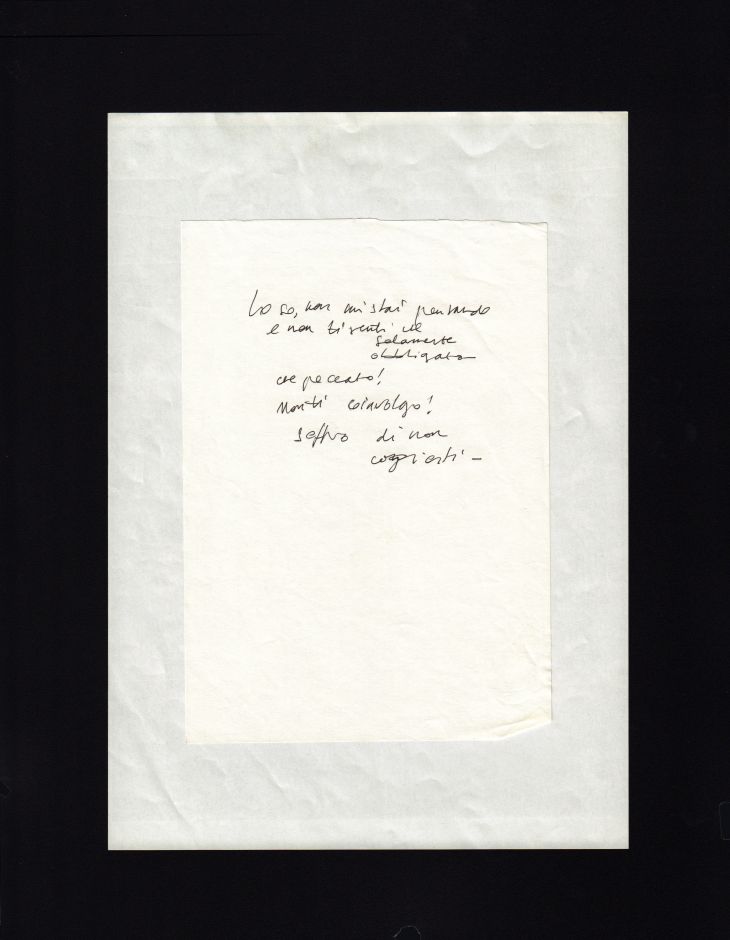 Lo so, non mi stai pensando
e non ti senti ne
solamente
obbligata
che peccato!
Non ti coinvolgo!
Soffro di non